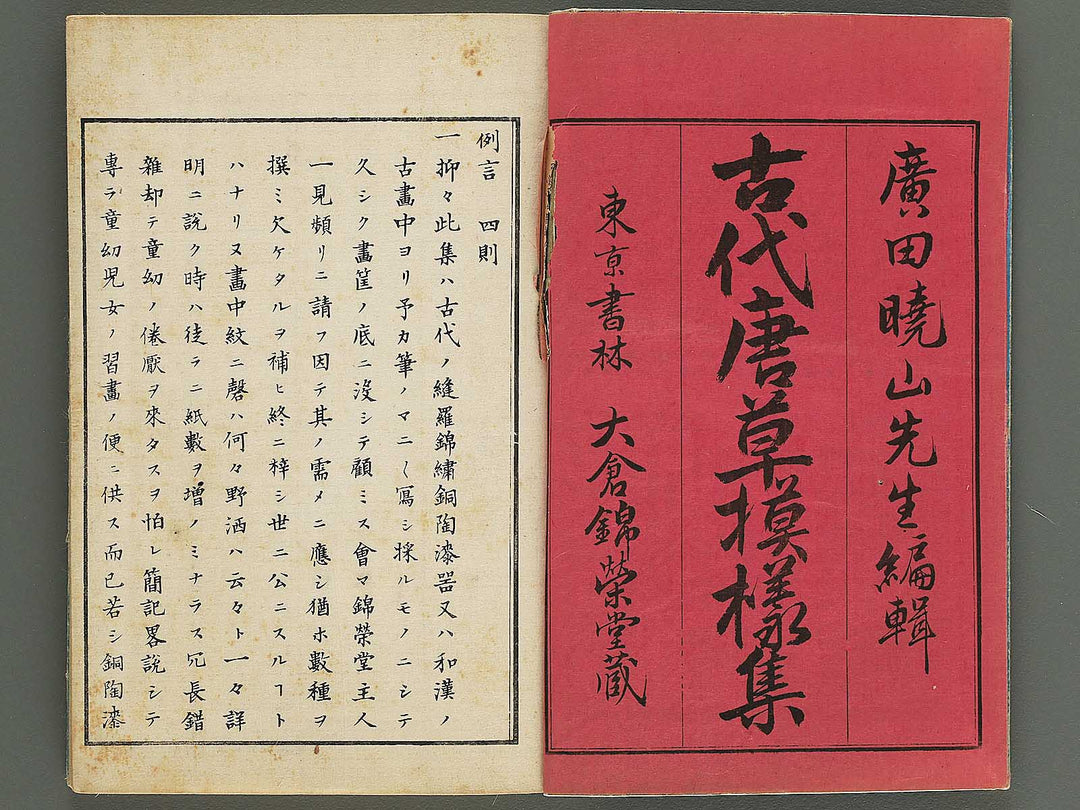 廣田曉山先生編輯
古代唐草模様集
東京書林　大倉錦榮堂蔵
例言　四則
一抑々此集ハ古代ノ縫羅錦繡銅陶漆器又ハ和漢ノ
古畫中ヨリ予カ筆ノマニ〱寫シ採ルモノニシテ
久シク畫筐ノ底ニ沒シテ顧ミス會マ錦榮堂主人
一見頻リニ請フ因テ其ノ需メニ應シ猶ホ數種ヲ
撰ミ欠ケタルヲ補ヒ終ニ梓シ世ニ公ニスルヿト
ハナリヌ畫中紋ニ磬ハ何々野洒ハ云々ト一々詳
明ニ説ク時ハ徒ラニ紙數ヲ増ノミナラス冗長錯
雜却テ童幼ノ倦厭ヲ來タスヲ怕レ簡記畧説シテ
專ラ童幼兒女ノ習畫ノ便ニ供ス而已若シ銅陶漆